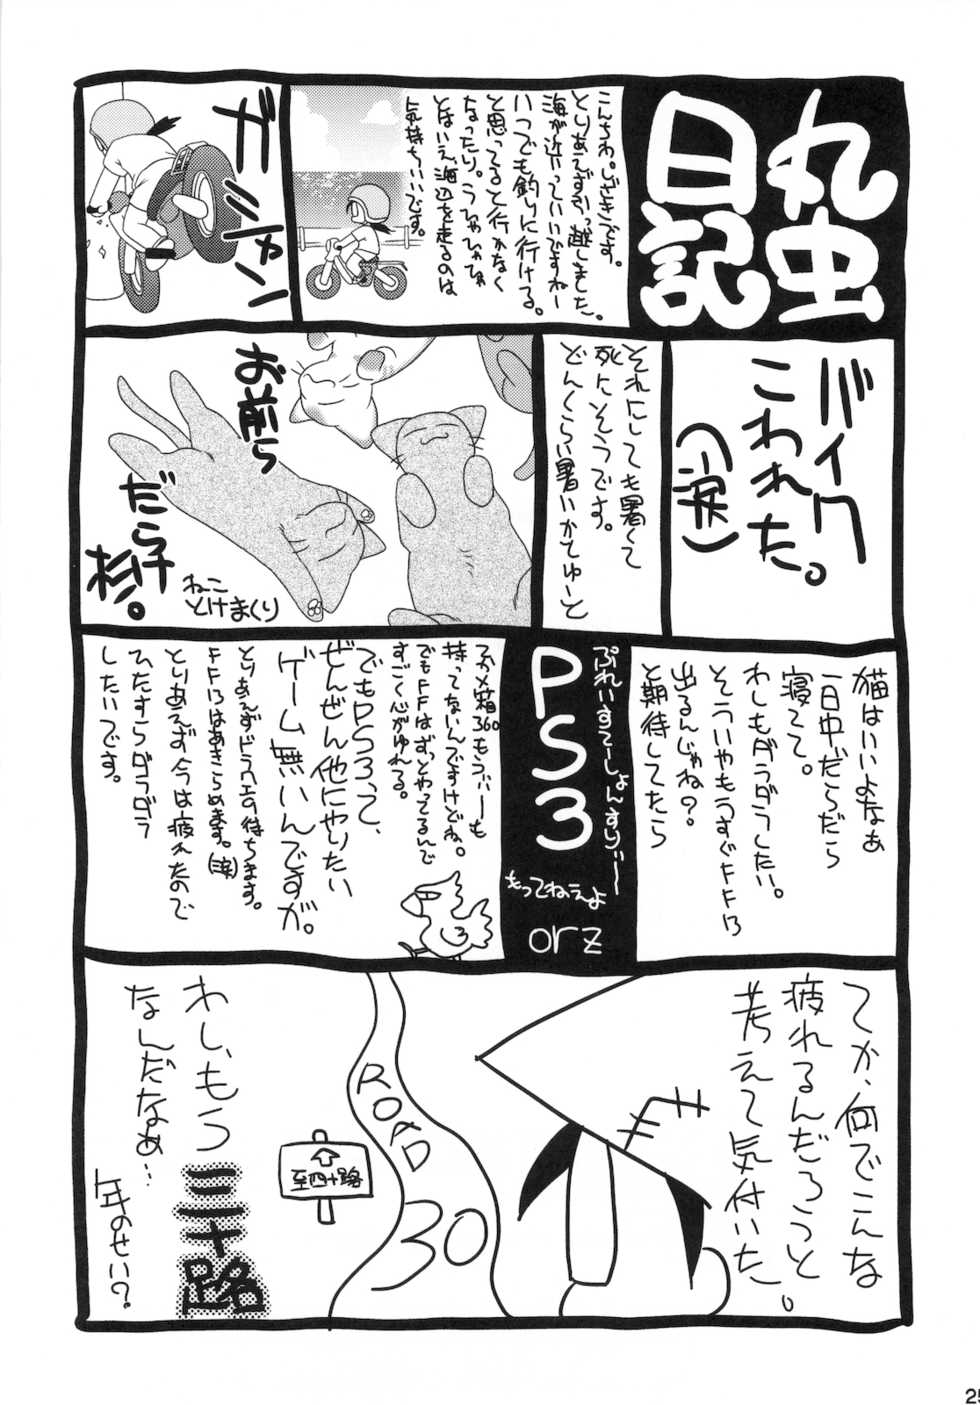 丸虫
日記
こんちわ。しざきです。
とりあえず引っ越しました。
海が近いっていいですねー
いつでも釣りに行ける。
と思ってると行かなく
なったり。うひゃひゃひゃ
とはいえ海辺を走るのは
気持ちいいです。
ガシャン
バイク
こわれた。
(涙)
それにしても暑くて
死にそうです。
どんくらい暑いかてゅーと
お前ら
だらけ
杉。
ねこ
とけまくり
猫はいいよなぁ
一日中だらだら
寝てて。
わしもダラダラしたい。
そういやもうすぐFF13
出るんじゃね?
と期待してたら
ぷれいすてーしょんすりぃー
PS3
もってねぇよ
orz
てか×箱360もうぃーも
持ってないんですけどね。
でもFFはずっとやってるんで
すごく心がゆれる。
でもPS3って、
ぜんぜん他にやりたい
ゲーム無いんですが。
とりあえずドラクエの待ちます。
FF13はあきらめます。(涙)
とりあえず今は疲れたので
ひたすらダラダラ
したいです。
てか、何でこんな
疲れるんだろうと
考えて気付いた。
ROAD
30
至四十路
わし、もう
三十路
なんだなぁ…
年のせい?
25